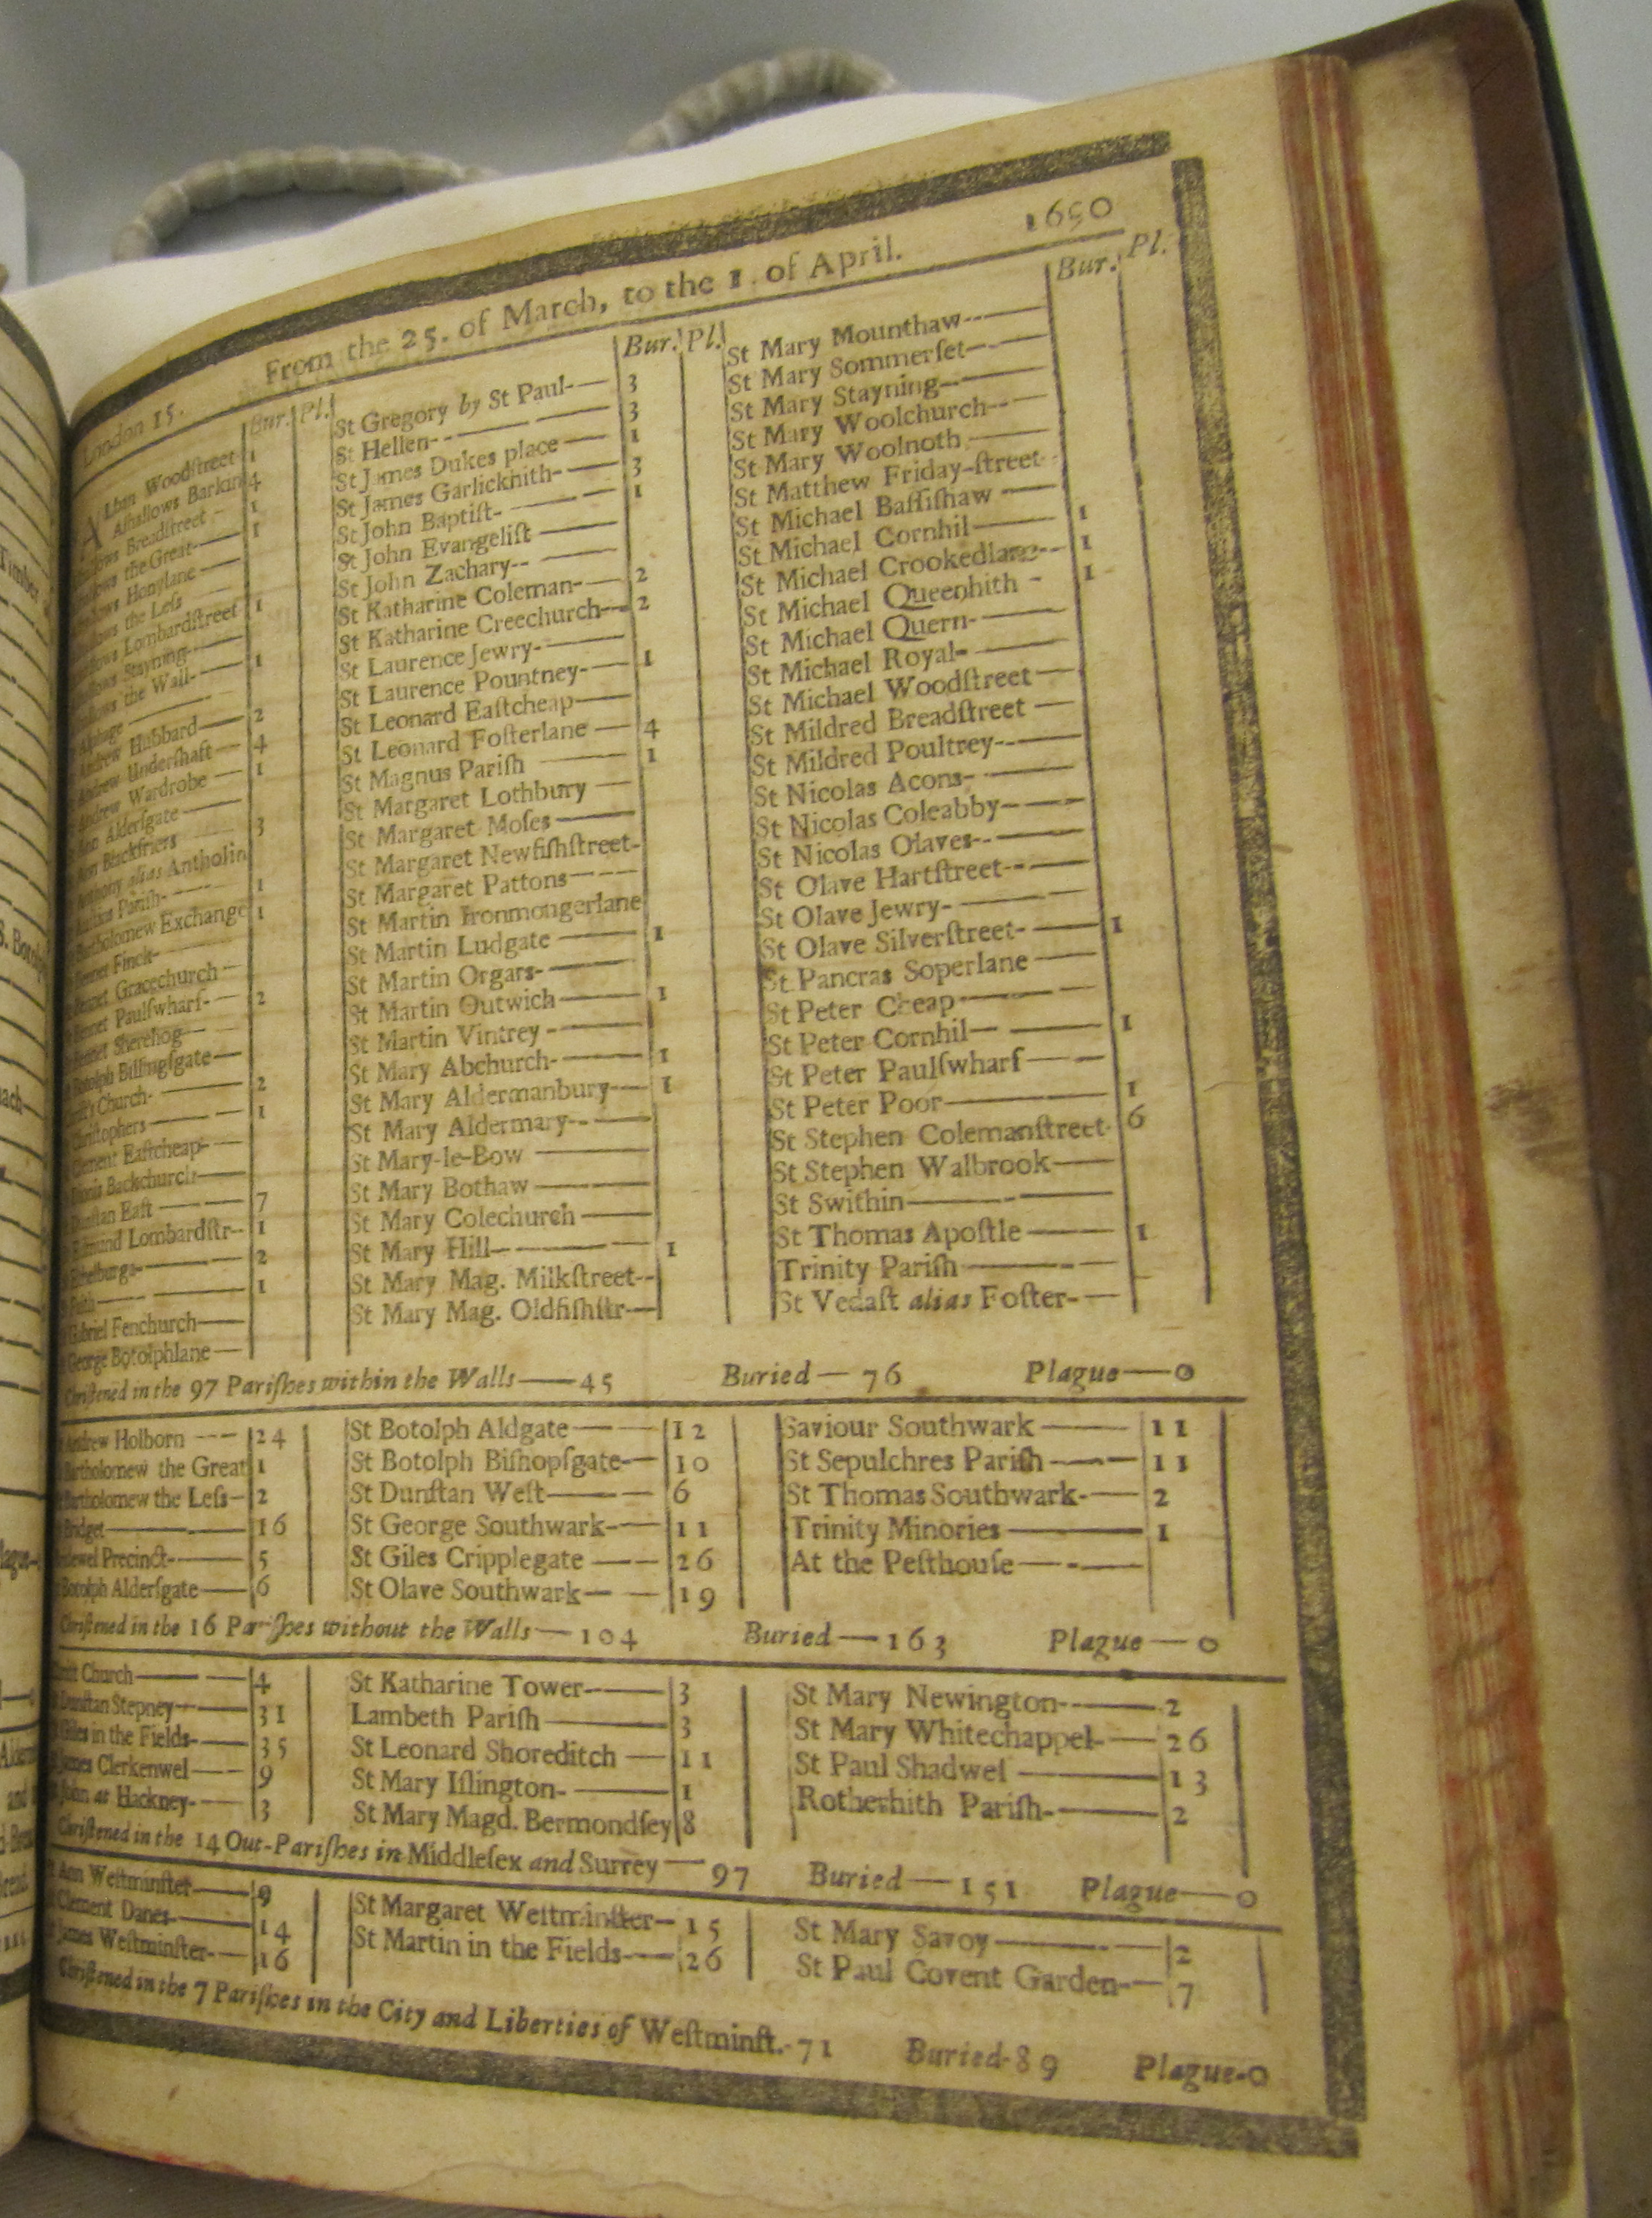 From the 25. of March, to the 1. of April. 1690
London 15.
Bur. Pl.
Alban Woodſtreet 1
Alhallows Barkin 4
Breadſtreet 1
the Great 1
Honylane
the Leſs
Lombardſtreet 1
Stayning
the Wall 1
Alphage
Andrew Hubbard 2
Andrew Underſhaft 4
Andrew Wardrobe 1
Ann Alderſgate
Ann Blackfriers 3
alias Antholin
Pariſh 1
Bartholomew Exchange 1
Bennet Finck
Bennet Gracechurch
Bennet Paulſwharf 2
Bennet Sherehog
Botolph Billingſgate
Church 2
Chriſtophers 1
Clement Eaſtcheap
Dionis Backchurch
Dunſtan Eaſt 7
Edmund Lombardſtr 1
Ethelburga 2
Faith 1
Gabriel Fenchurch
George Botolphlane
Bur. Pl.
St Gregory by St Paul 3
St Hellen 3
St James Dukes place 1
St James Garlickhith 3
St John Baptiſt 1
St John Evangeliſt
St John Zachary
St Katharine Coleman 2
St Katharine Creechurch 2
St Laurence Jewry
St Laurence Pountney 1
St Leonard Eaſtcheap
St Leonard Foſterlane 4
St Magnus Pariſh 1
St Margaret Lothbury
St Margaret Moſes
St Margaret Newfiſhſtreet
St Margaret Pattons
St Martin Ironmongerlane
St Martin Ludgate 1
St Martin Orgars
St Martin Outwich 1
St Martin Vintrey
St Mary Abchurch 1
St Mary Aldermanbury 1
St Mary Aldermary
St Mary-le-Bow
St Mary Bothaw
St Mary Colechurch
St Mary Hill 1
St Mary Mag. Milkſtreet
St Mary Mag. Oldfiſhſtr
Bur. Pl.
St Mary Mounthaw
St Mary Sommerſet
St Mary Stayning
St Mary Woolchurch
St Mary Woolnoth
St Matthew Friday-ſtreet
St Michael Baſſiſhaw
St Michael Cornhil 1
St Michael Crookedlane 1
St Michael Queenhith 1
St Michael Quern
St Michael Royal
St Michael Woodſtreet
St Mildred Breadſtreet
St Mildred Poultrey
St Nicolas Acons
St Nicolas Coleabby
St Nicolas Olaves
St Olave Hartſtreet
St Olave Jewry
St Olave Silverſtreet 1
St Pancras Soperlane
St Peter Cheap
St Peter Cornhil 1
St Peter Paulſwharf
St Peter Poor 1
St Stephen Colemanſtreet 6
St Stephen Walbrook
St Swithin
St Thomas Apoſtle 1
Trinity Pariſh
St Vedaſt alias Foſter
Chriſtened in the 97 Pariſhes within the Walls 45 Buried 76 Plague 0
Andrew Holborn 24
Bartholomew the Great 1
Bartholomew the Leſs 2
Bridget 16
Bridewel Precinct 5
Botolph Alderſgate 6
St Botolph Aldgate 12
St Botolph Biſhopſgate 10
St Dunſtan Weſt 6
St George Southwark 11
St Giles Cripplegate 26
St Olave Southwark 19
Saviour Southwark 11
St Sepulchres Pariſh 11
St Thomas Southwark 2
Trinity Minories 1
At the Peſthouſe
Chriſtened in the 16 Pariſhes without the Walls 104 Buried 163 Plague 0
Chriſt Church 4
Dunſtan Stepney 31
Giles in the Fields 35
James Clerkenwel 9
John at Hackney 3
St Katharine Tower 3
Lambeth Pariſh 3
St Leonard Shoreditch 11
St Mary Iſlington 1
St Mary Magd. Bermondſey 8
St Mary Newington 2
St Mary Whitechappel 26
St Paul Shadwel 13
Rotherhith Pariſh 2
Chriſtened in the 14 Out-Pariſhes in Middleſex and Surrey 97 Buried 151 Plague 0
St Ann Weſtminſter 9
Clement Danes 14
James Weſtminſter 16
St Margaret Weſtminſter 15
St Martin in the Fields 26
St Mary Savoy 2
St Paul Covent Garden 7
Chriſtened in the 7 Pariſhes in the City and Liberties of Weſtminſt. 71 Buried 89 Plague 0